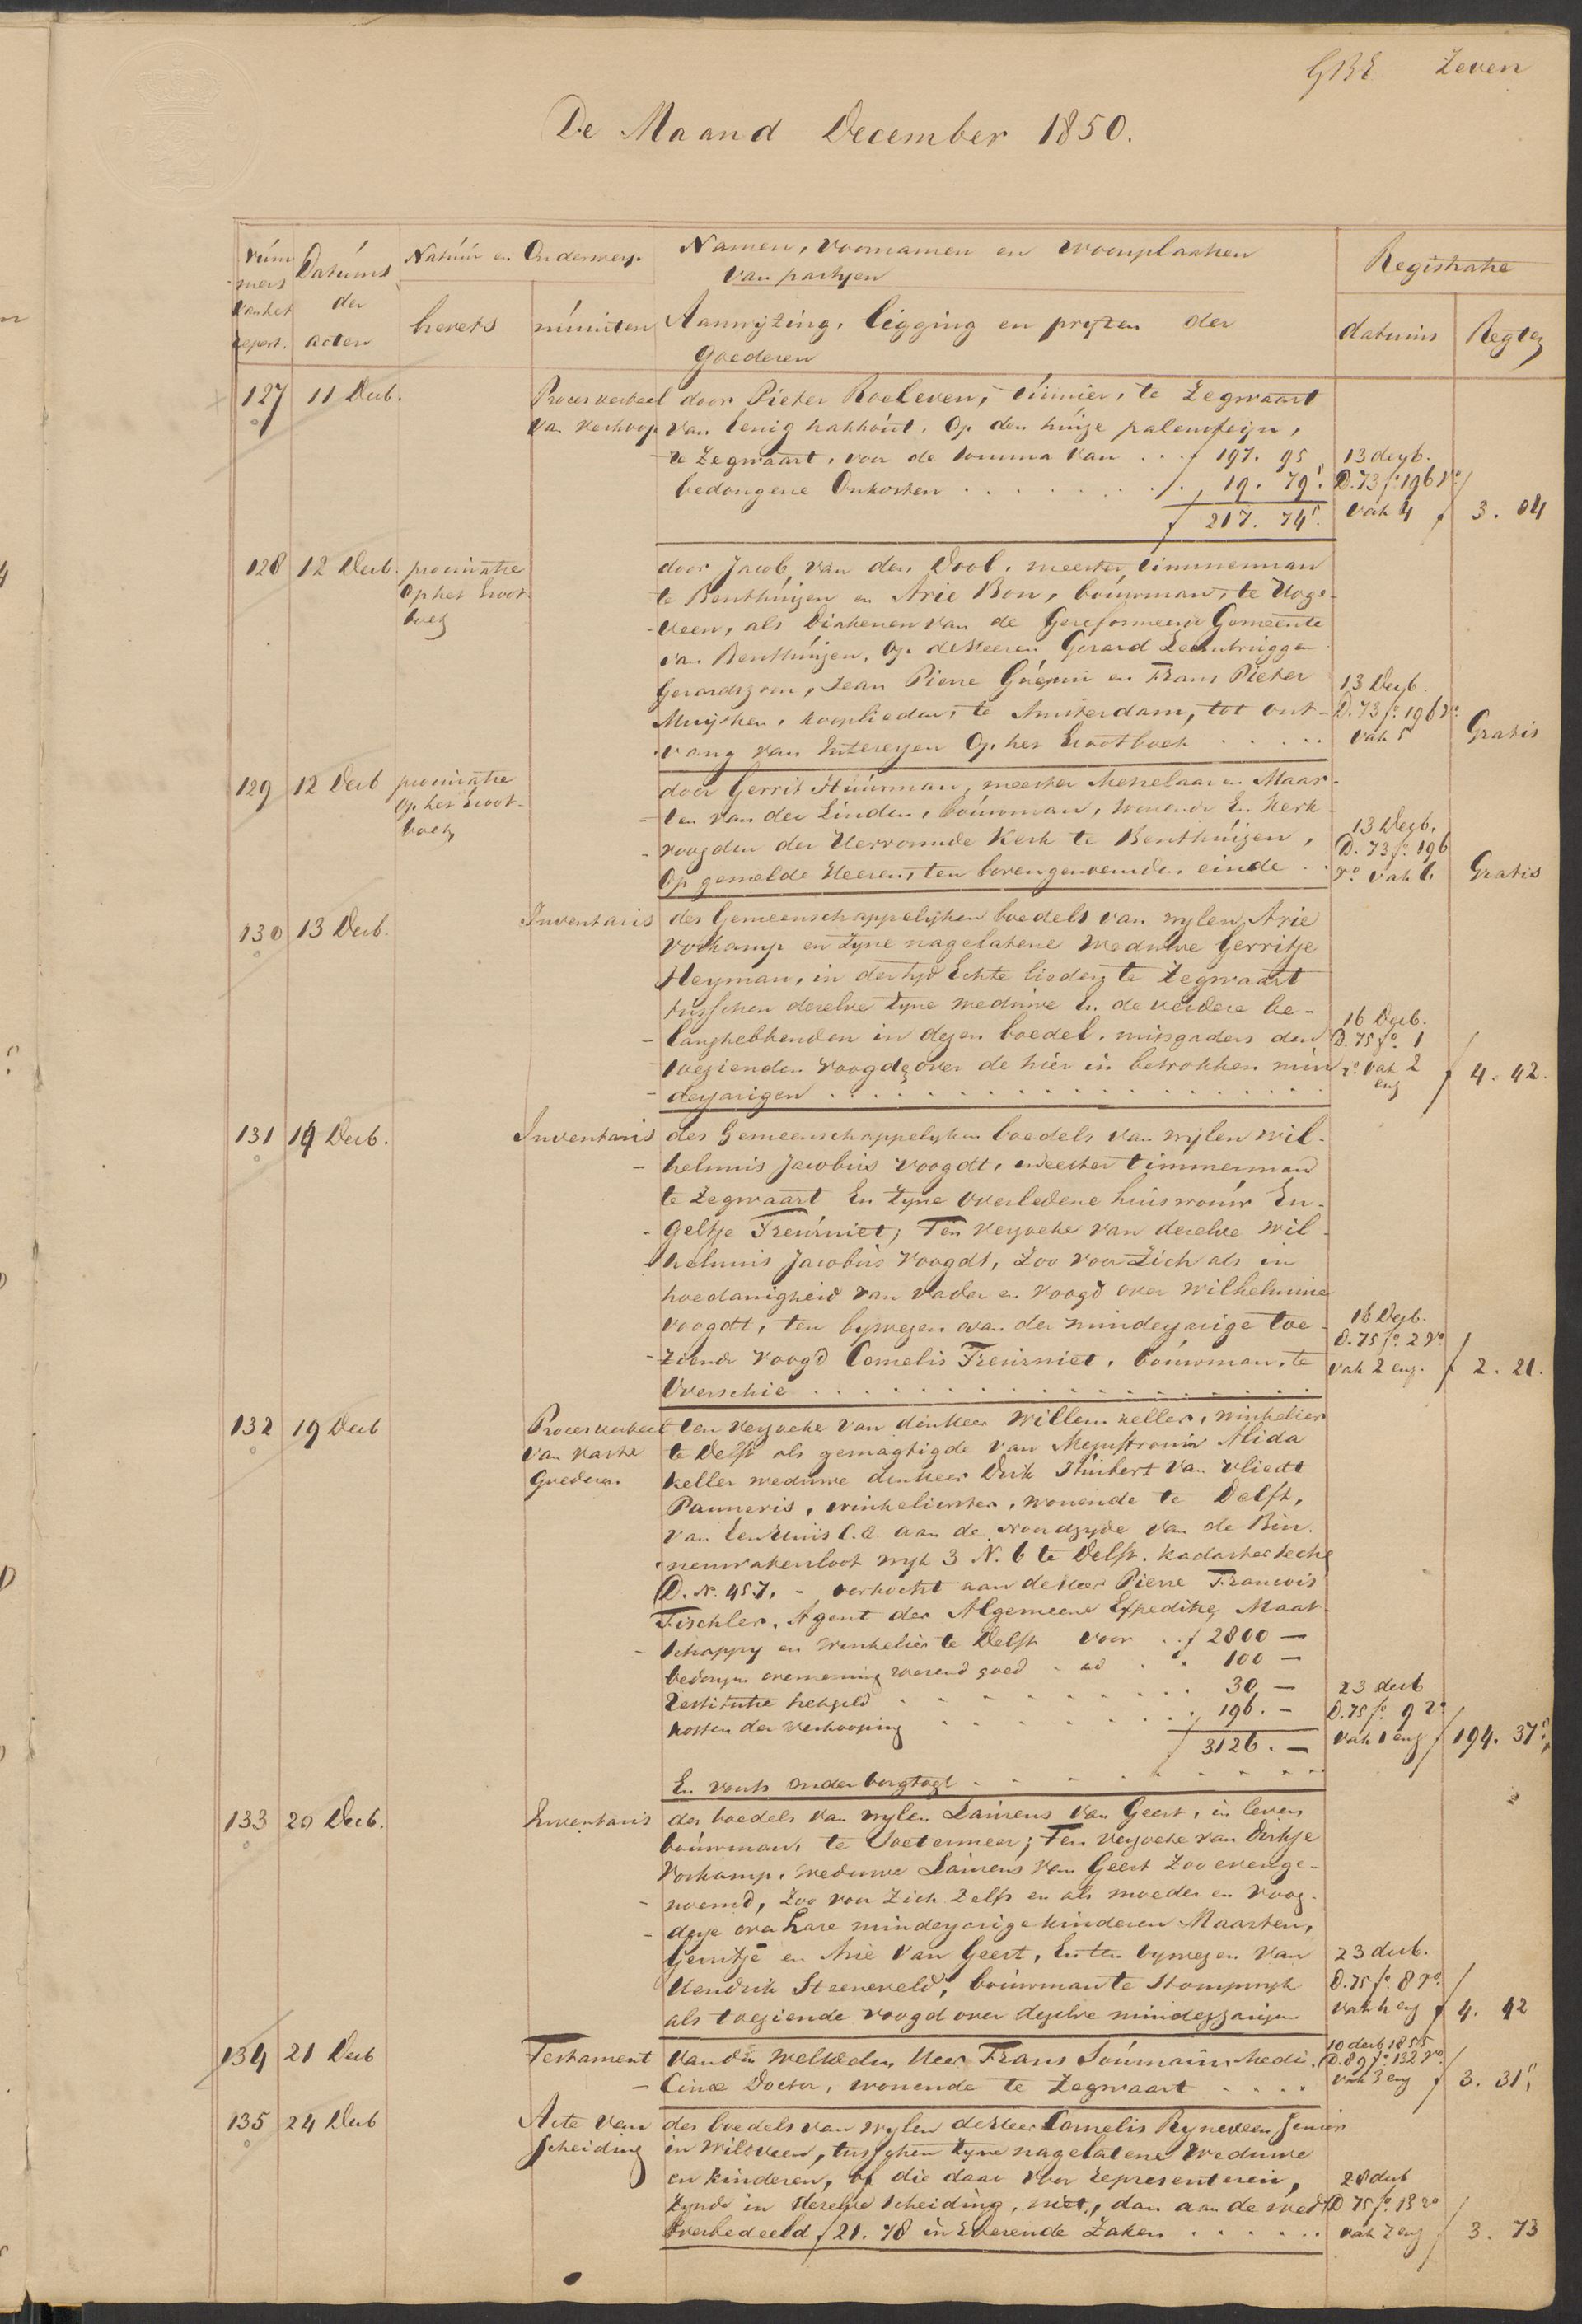 Zeven
De Maand December 1850.
Núm
mers
van het
repert.
Datúms
der
acten
Natúúr en Onderwerp.
brevets
minúten
Namen, Voornamen en Woonplaatsen
van partyen
Aanwyzing, ligging en pryzen der
Goederen
Registratie
datums
Regten
127
11 Decb.
Proces verbaal
van verkoop
door Pieter Roeleven, te Zegwaart
van Eenig hakhoút, Op den húize palensteijn,
te Zegwaart, voor de somma van . . . f 197. 95
bedongene Onkosten . . . . . . . . . , 19. 79⁵.
f 217. 74⁵.
13 decb.
D. 73 fo. 196 vo.
vak 4
f 3. 04
128
12 Decb.
procuratie
Op het Groot
boek
door Jacob van den Dool, meester timmerman
te Benthúizen en Arie Bon, boúwman, te Hoge-
veen, als Diakenen van de Gereformeerde Gemeente
van Benthúizen, Op de Heeren Gerard
Gerardszoon, Jean Pierre Guépin en Frans Pieter
Muijsken, kooplieden, te Amsterdam, tot ont-
vang van Interessen Op het Grootboek . . . . .
13 Decb.
D. 73 fo. 196 vo.
vak 5
Gratis
129
12 Decb
procuratie
Op het Groot-
boek
door Gerrit Húúrman, meester Metselaar en Maar-
ten van der Linden, boúwman, wonende En Kerk-
voogden der Hervormde Kerk te Benthúizen,
Op gemelde Heeren, ten bovengenoemden einde . .
13 Decb.
D. 73 fo. 196
vo. vak 6.
Gratis
130
13 Decb.
Inventaris
des Gemeenschappelyken boedels van wylen Arie
Voskamp en Zyne nagelatene Weduwe Gerritje
Heyman, in der tyd Echte lieden te Zegwaart
tusschen dezelve Zyne weduwe En de verdere be-
langhebbenden in dezen boedel, mitsgaders den
toezienden Voogd over de hier in betrokken min
derjarigen . . . . . . . . . . . . . . . . . .
16 Decb.
D. 75 fo. 1
ro. vak 2
env
f 4. 42.
131
14 Decb.
Inventaris
des Gemeenschappelyken boedels van wijlen Wil-
helmus Jacobus Voogdt, meester timmerman
te Zegwaart En Zyne Overledene huisvroúw En-
geltje Treúrniet; Ten verzoeke van dezelve Wil-
helmus Jacobus Voogdt, Zoo voor Zich als in
hoedanigheid van vader en voogd over Wilhelmina
Voogdt, ten bywezen van der minderjarige toe-
ziende voogd Cornelis Treurniet, boúwman, te
Overschie . . . . . . . . . . . . . . . . . .
16 Decb.
D. 75 fo. 2 vo.
vak 2 env.
f 2. 21.
132
19 Decb
Proces verbaal
van vaste
Goederen.
ten verzoeke van den Heer Willem Keller, winkelier
te Delft als gemagtigde van Mejufvrouw Alida
Keller weduwe den Heer Dirk Húibert van Vliedt
Panneris, winkelierster, wonende te Delft,
van Een Huis C.a. aan de Noordzyde van de Bin-
nenwatersloot wyk 3 N. 6 te Delft. Kadaster sectie
D. N. 457. - verkocht aan de Heer Pierre Francois
Tischler, Agent der Algemeene Expeditie Maat-
schappy en winkelier te Delft voor . . f 2800 —
bedongen overneming roerend goed . ad . . 100 —
Restitutie . . . . . . . . 30 —
kosten der verkooping . . . . . . . , 196. —
f 3126. —
En voorts onder borgtogt . . . . . . . . .
23 decb
D. 75 fo. 9 ro
vak 1 env
f 194. 37⁵.
133
20 Decb.
Inventaris
des boedels van wylen Laurens van Geest, in leven
boúwman, te Soetermeer; Ten verzoeke van Dirkje
Voskamp, weduwe Laurens van Geest Zoo evenge-
noemd, Zoo voor Zich Zelfs en als moeder en voog-
desse over hare minderjarige kinderen Maarten,
Gerritje en Arie van Geest, En ten bywezen van
Hendrik Steeneveld, boúwman te Stompwyk
als toeziende voogd over dezelve minderjarigen
23 decb.
D. 75 fo. 8 vo.
vak 4 env
f 4. 42
134
21 Decb
Testament
van den WelEdelen Heer Frans Soúmain, Medi-
cinæ Doctor, wonende te Zegwaart . . . .
10 decb 1855
D. 89 fo. 132 vo.
vak 3 env
f 3. 31⁵.
135
24 Decb
Acte van
Scheiding
des boedels van wylen de Heer Cornelis Ryneveen Senior
in Wilsveen, tusschen Zyne nagelatene Weduwe
en kinderen, of die daar voor representeren,
Zynde in dezelve Scheiding, niet, dan aan de wed.
Overbedeeld f 21. 78 in Roerende Zaken . . . . .
28 decb
D 75 fo. 13 ro
vak 7 env
f 3. 73